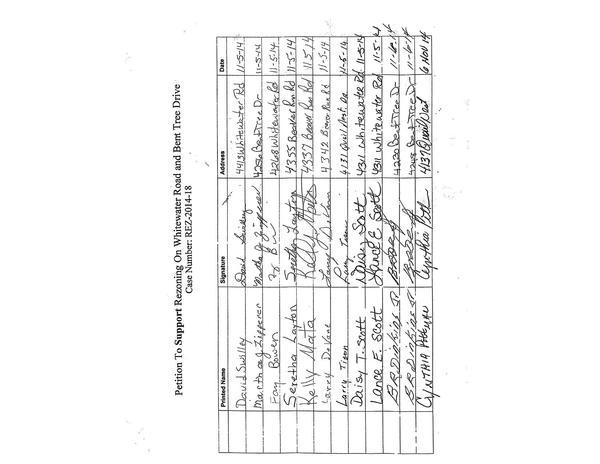 Petition To Support Rezoning On Whitewater Road and Bent Tree Drive
Case Number: REZ-2014-18
Printed Name Signature Address Date
David Swilley David Swilley 4413 Whitewater Rd 11-5-14
Martha J Zipperer Martha J Zipperer 4250 Bent Tree Dr 11-5-14
Fay Bowen 4268 Whitewater Rd 11-5-14
Seretha Layton Seretha Layton 4355 Beaver Run Rd 11-5-14
Kelly Mata Kelly Mata 4337 Beaver Run Rd 11 5 14
Larry DeVane Larry DeVane 4342 Beaver Run Rd 11-5-14
Larry Tison Larry Tison 4131 Quail 11-5-14
Daisy T. Scott Daisy Scott 4311 Whitewater Rd 11-5-14
Lance E. Scott Lance E. Scott 4311 Whitewater Rd 11-5-14
B R Dinkins Jr 4230 Bent Tree Dr 11-6-14
B R Dinkins Jr Bent Tree Dr 11-6-14
CYNTHIA Cynthia 4137 Quail 6 NOV 14